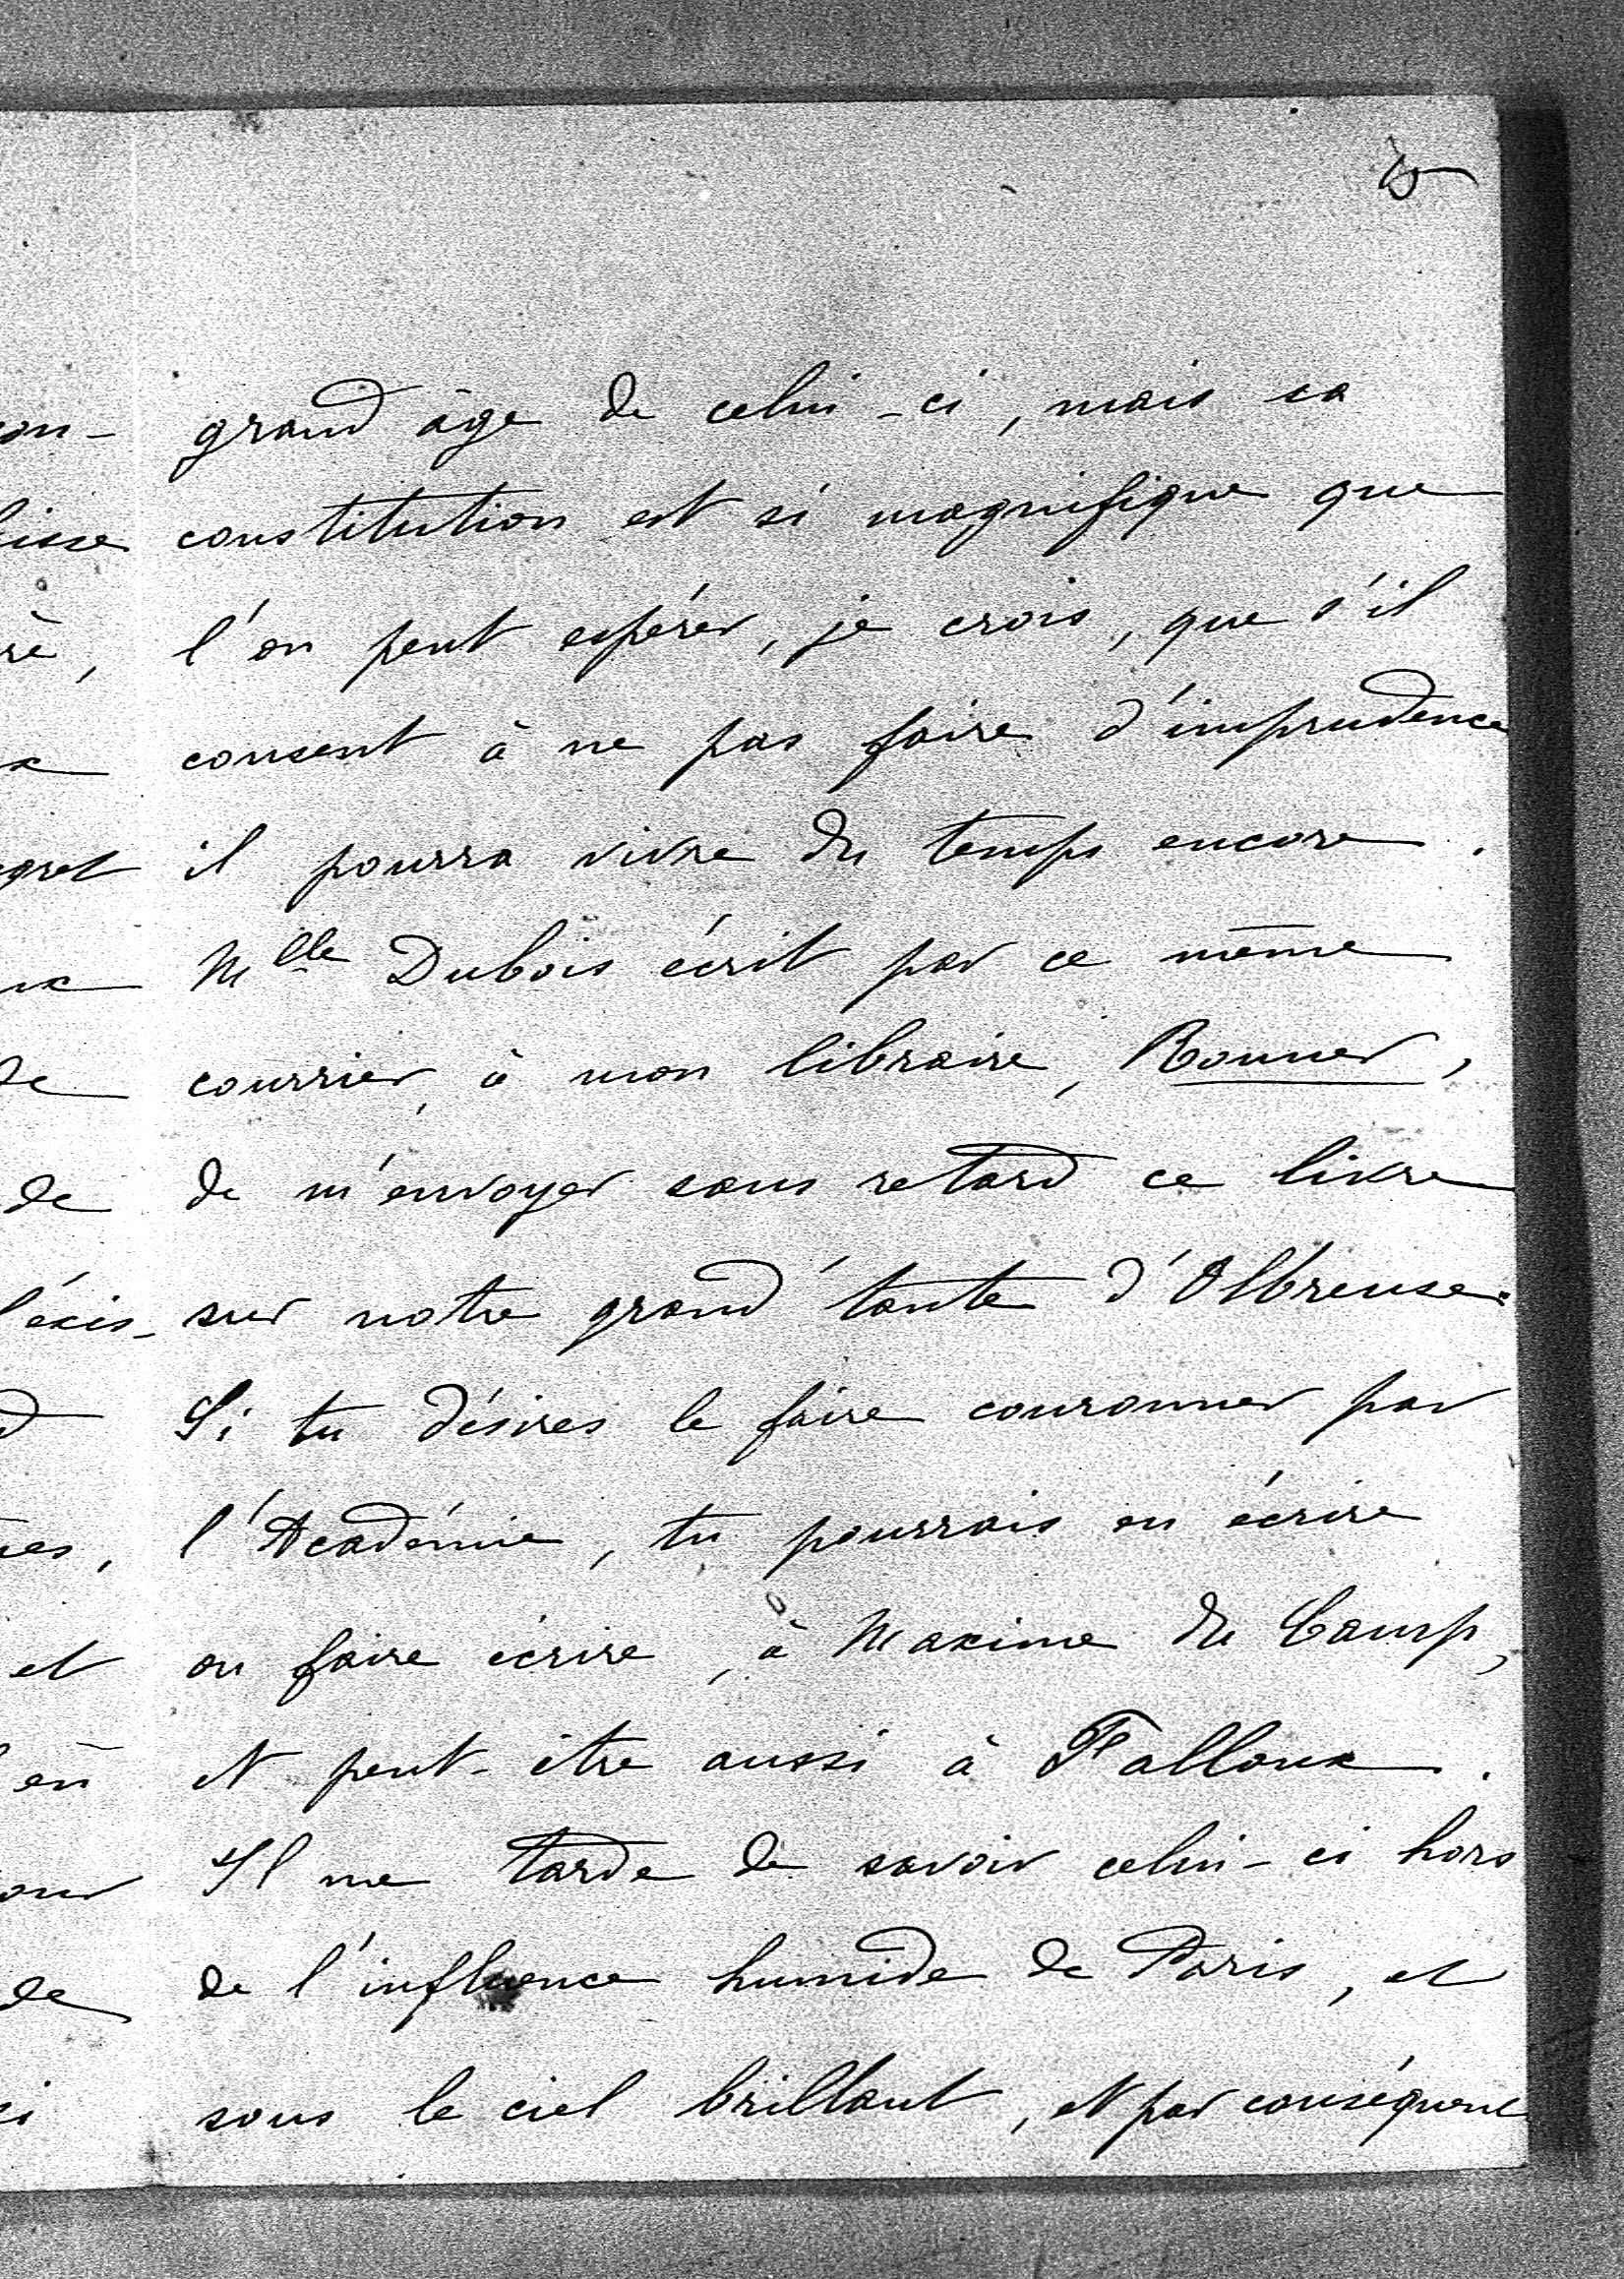 grand âge de celui-ci, mais sa
constitution est si magnifique que
l'on peut espérer, je crois, que s'il
consent à ne pas faire d'imprudence
il pourra vivre du temps encore.
Mlle Dubois écrit par ce même
courrier, à mon libraire, Rouner,
de m'envoyer sans retard ce livre
sur notre grand'tante d'Olbreuse.
Si tu désires le faire couronner par
l'Académie, tu pourrais en écrire
ou faire écrire, à Maxime du Camp,
et peut-être aussi à Falloux.
Il me tarde de savoir celui-ci hors
de l'influence humide de Paris, et
sous le ciel brillant, et par conséquent